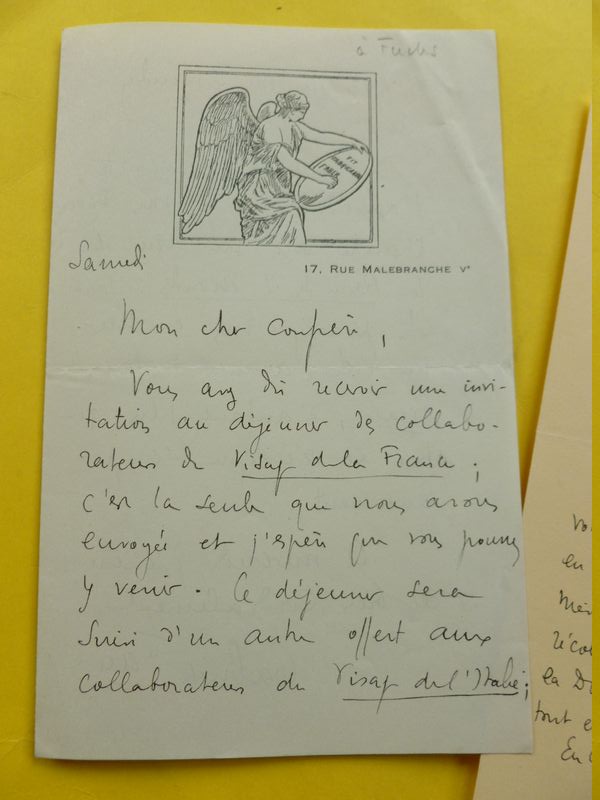 à Fuchs
17, RUE MALEBRANCHE Vᵉ
Samedi
Mon cher Confrère,
Vous avez dû recevoir une invi-
tation au déjeuner des collabo-
rateurs de Visage de la France ;
c'est la seule que nous avons
envoyée et j'espère que vous pourrez
y venir. Ce déjeuner sera
suivi d'un autre offert aux
collaborateurs du Visage de l'Italie ;
en
la
tout
En